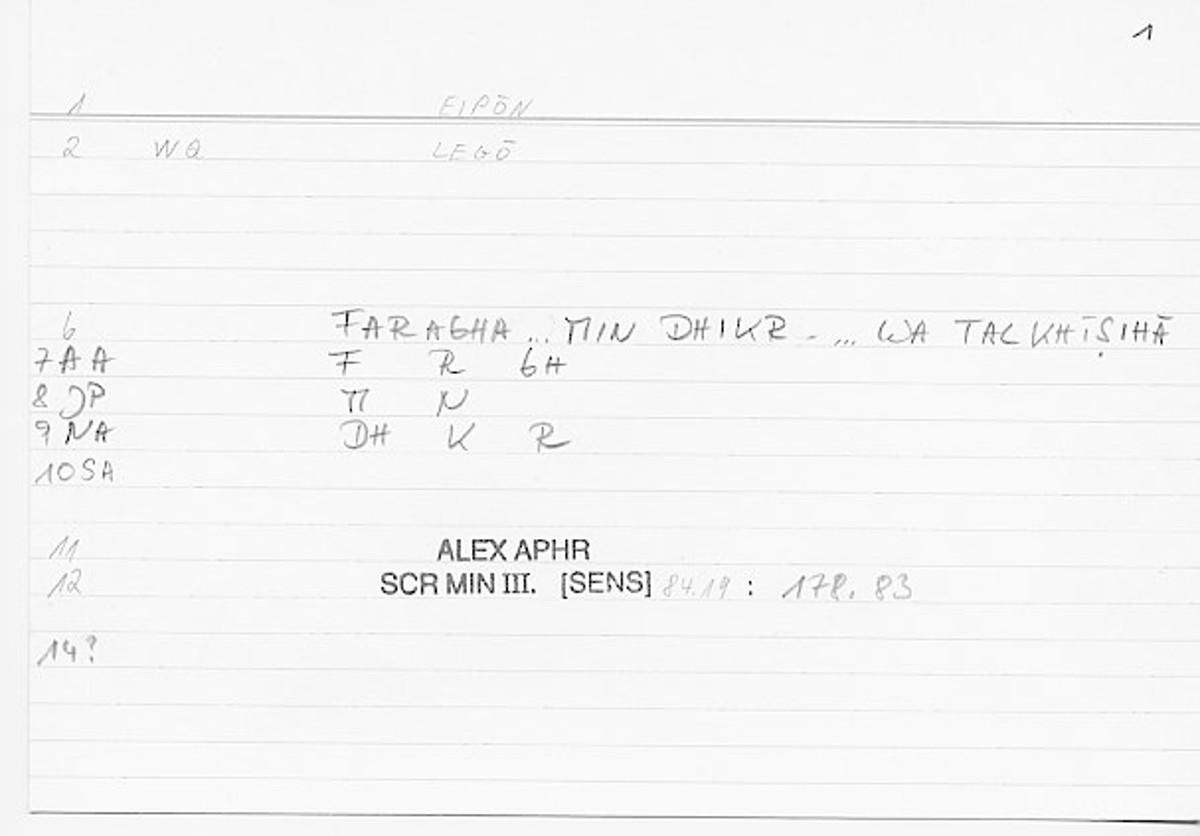 1
1 EIPŌN
2 WQ LEGŌ
6 FARAGHA ... MIN DHIKR - ... WA TALKHĪṢIHĀ
7 AA F R GH
8 JP M N
9 NA DH K R
10 SA
11 ALEX APHR
12 SCR MIN III. [SENS] 84.19 : 178. 83
14?